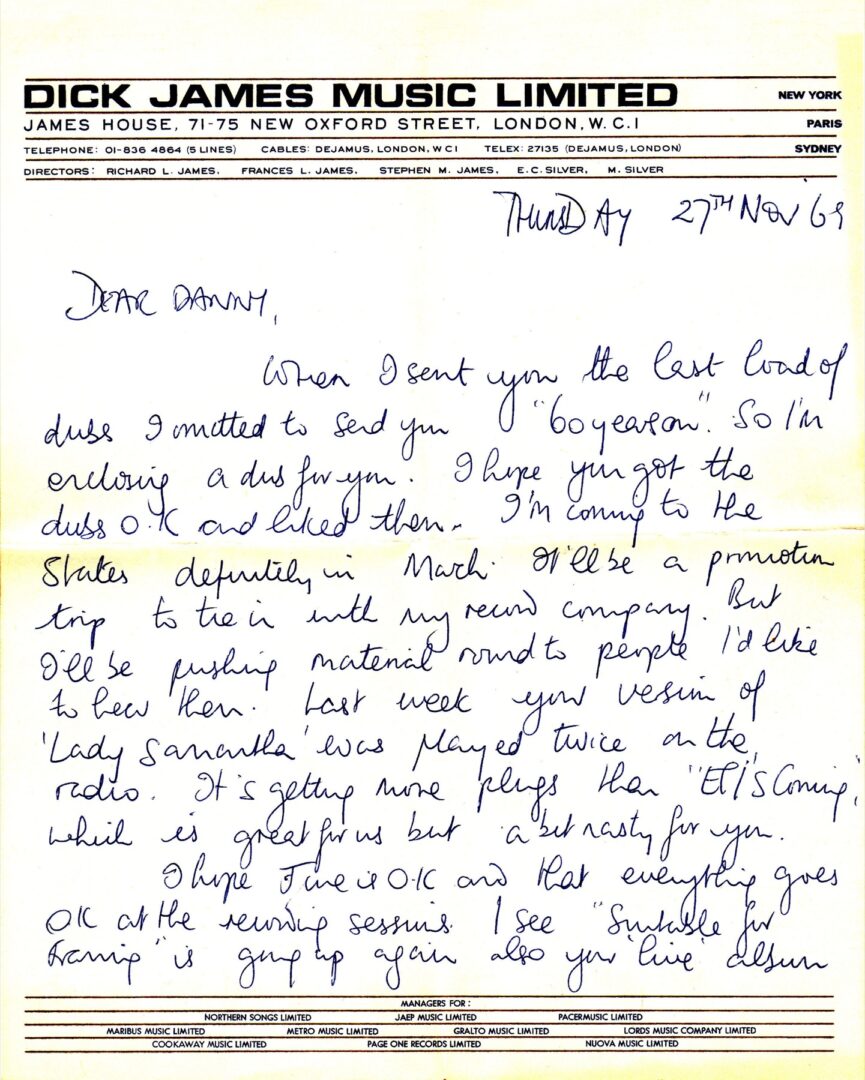 DICK JAMES MUSIC LIMITED
NEW YORK
JAMES HOUSE, 71-75 NEW OXFORD STREET, LONDON, W.C.1
PARIS
TELEPHONE: 01-836 4864 (5 LINES) CABLES: DEJAMUS, LONDON, WC1 TELEX: 27135 (DEJAMUS, LONDON)
SYDNEY
DIRECTORS: RICHARD L. JAMES, FRANCES L. JAMES, STEPHEN M. JAMES, E.C. SILVER, M. SILVER
THURSDAY 27TH NOV '69
DEAR DANNY,
When I sent you the last load of
dubs I omitted to send you "60 years on". So I'm
enclosing a dub for you. I hope you got the
dubs O.K and liked them. I'm coming to the
States definitely in March. It'll be a promotion
trip to tie in with my record company. But
I'll be pushing material round to people I'd like
to hear them. Last week your version of
'Lady Samantha' was played twice on the
radio. It's getting more plugs than "ELI'S Coming",
which is great for us but a bit nasty for you.
I hope June is O.K and that everything goes
OK at the recording sessions. I see "Suitable for
Framing" is going up again also your 'live' album
MANAGERS FOR:
NORTHERN SONGS LIMITED JAEP MUSIC LIMITED PACERMUSIC LIMITED
MARIBUS MUSIC LIMITED METRO MUSIC LIMITED GRALTO MUSIC LIMITED LORDS MUSIC COMPANY LIMITED
COOKAWAY MUSIC LIMITED PAGE ONE RECORDS LIMITED NUOVA MUSIC LIMITED